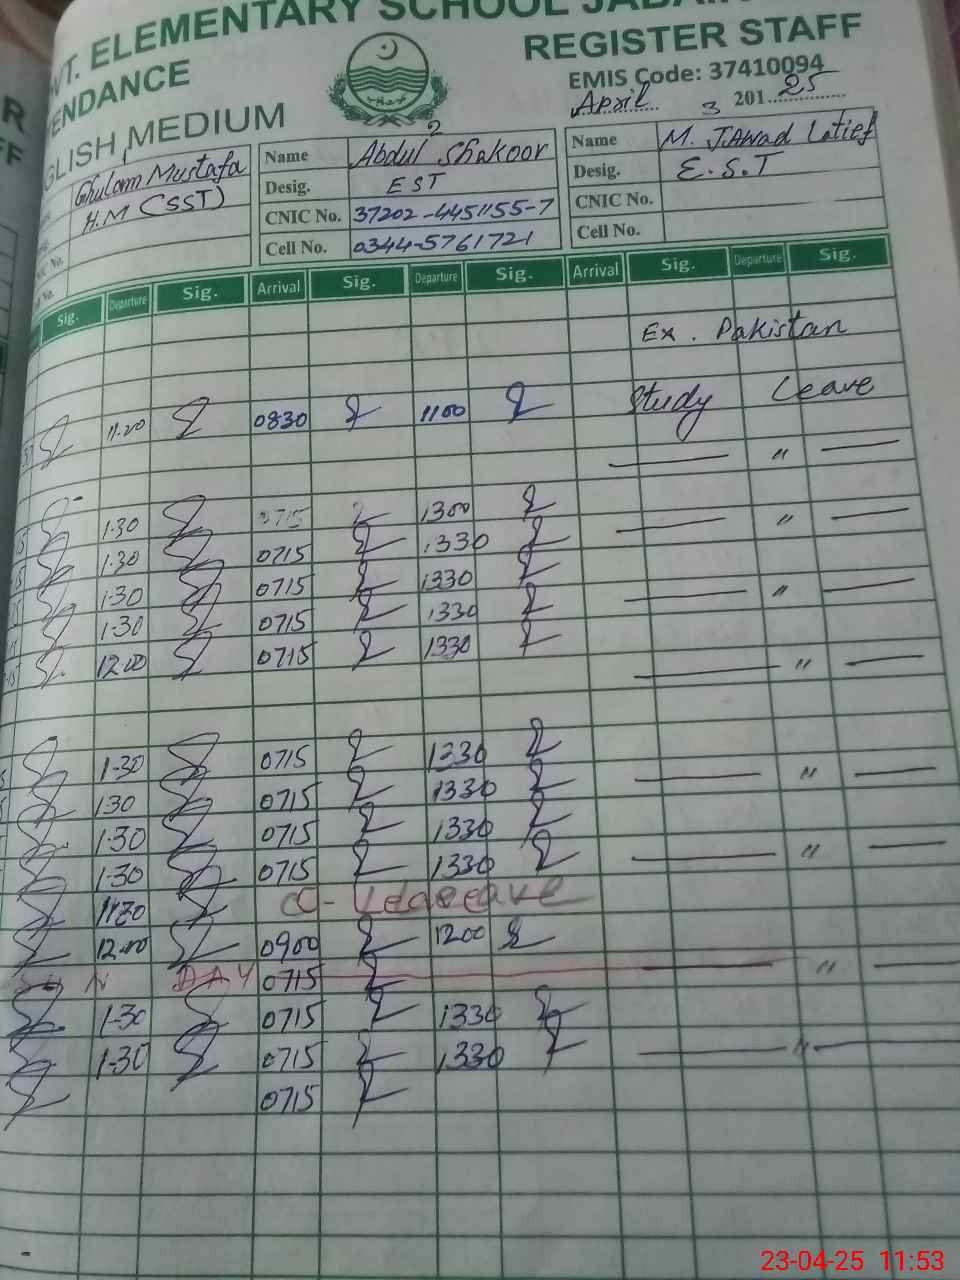 VT. ELEMENTARY SCHOOL JABAIR
ENDANCE REGISTER STAFF
EMIS Code: 37410094
GLISH MEDIUM April 3 2015 25
1 Ghulam Mustafa
H.M (SST)
2
Name Abdul Shakoor
Desig. EST
CNIC No. 37202-4451155-7
Cell No. 0344-5761721
Name M. JAWad Latief
Desig. E.S.T
CNIC No.
Cell No.
Sig. Departure Sig. Arrival Sig. Departure Sig. Arrival Sig. Departure Sig.
Ex. Pakistan
11.20 0830 1100 Study Leave
"
1.30 0715 1300 "
1.30 0715 1330
1.30 0715 1330 "
1.30 0715 1330
12.00 0715 1330 "
1.30 0715 1330
1.30 0715 1330 "
1.30 0715 1330
1.30 0715 1330 "
1130 C-Leave
12.00 0900 1200
DAY 0715 "
1.30 0715 1330
1.30 0715 1330 "
0715
23-04-25 11:53